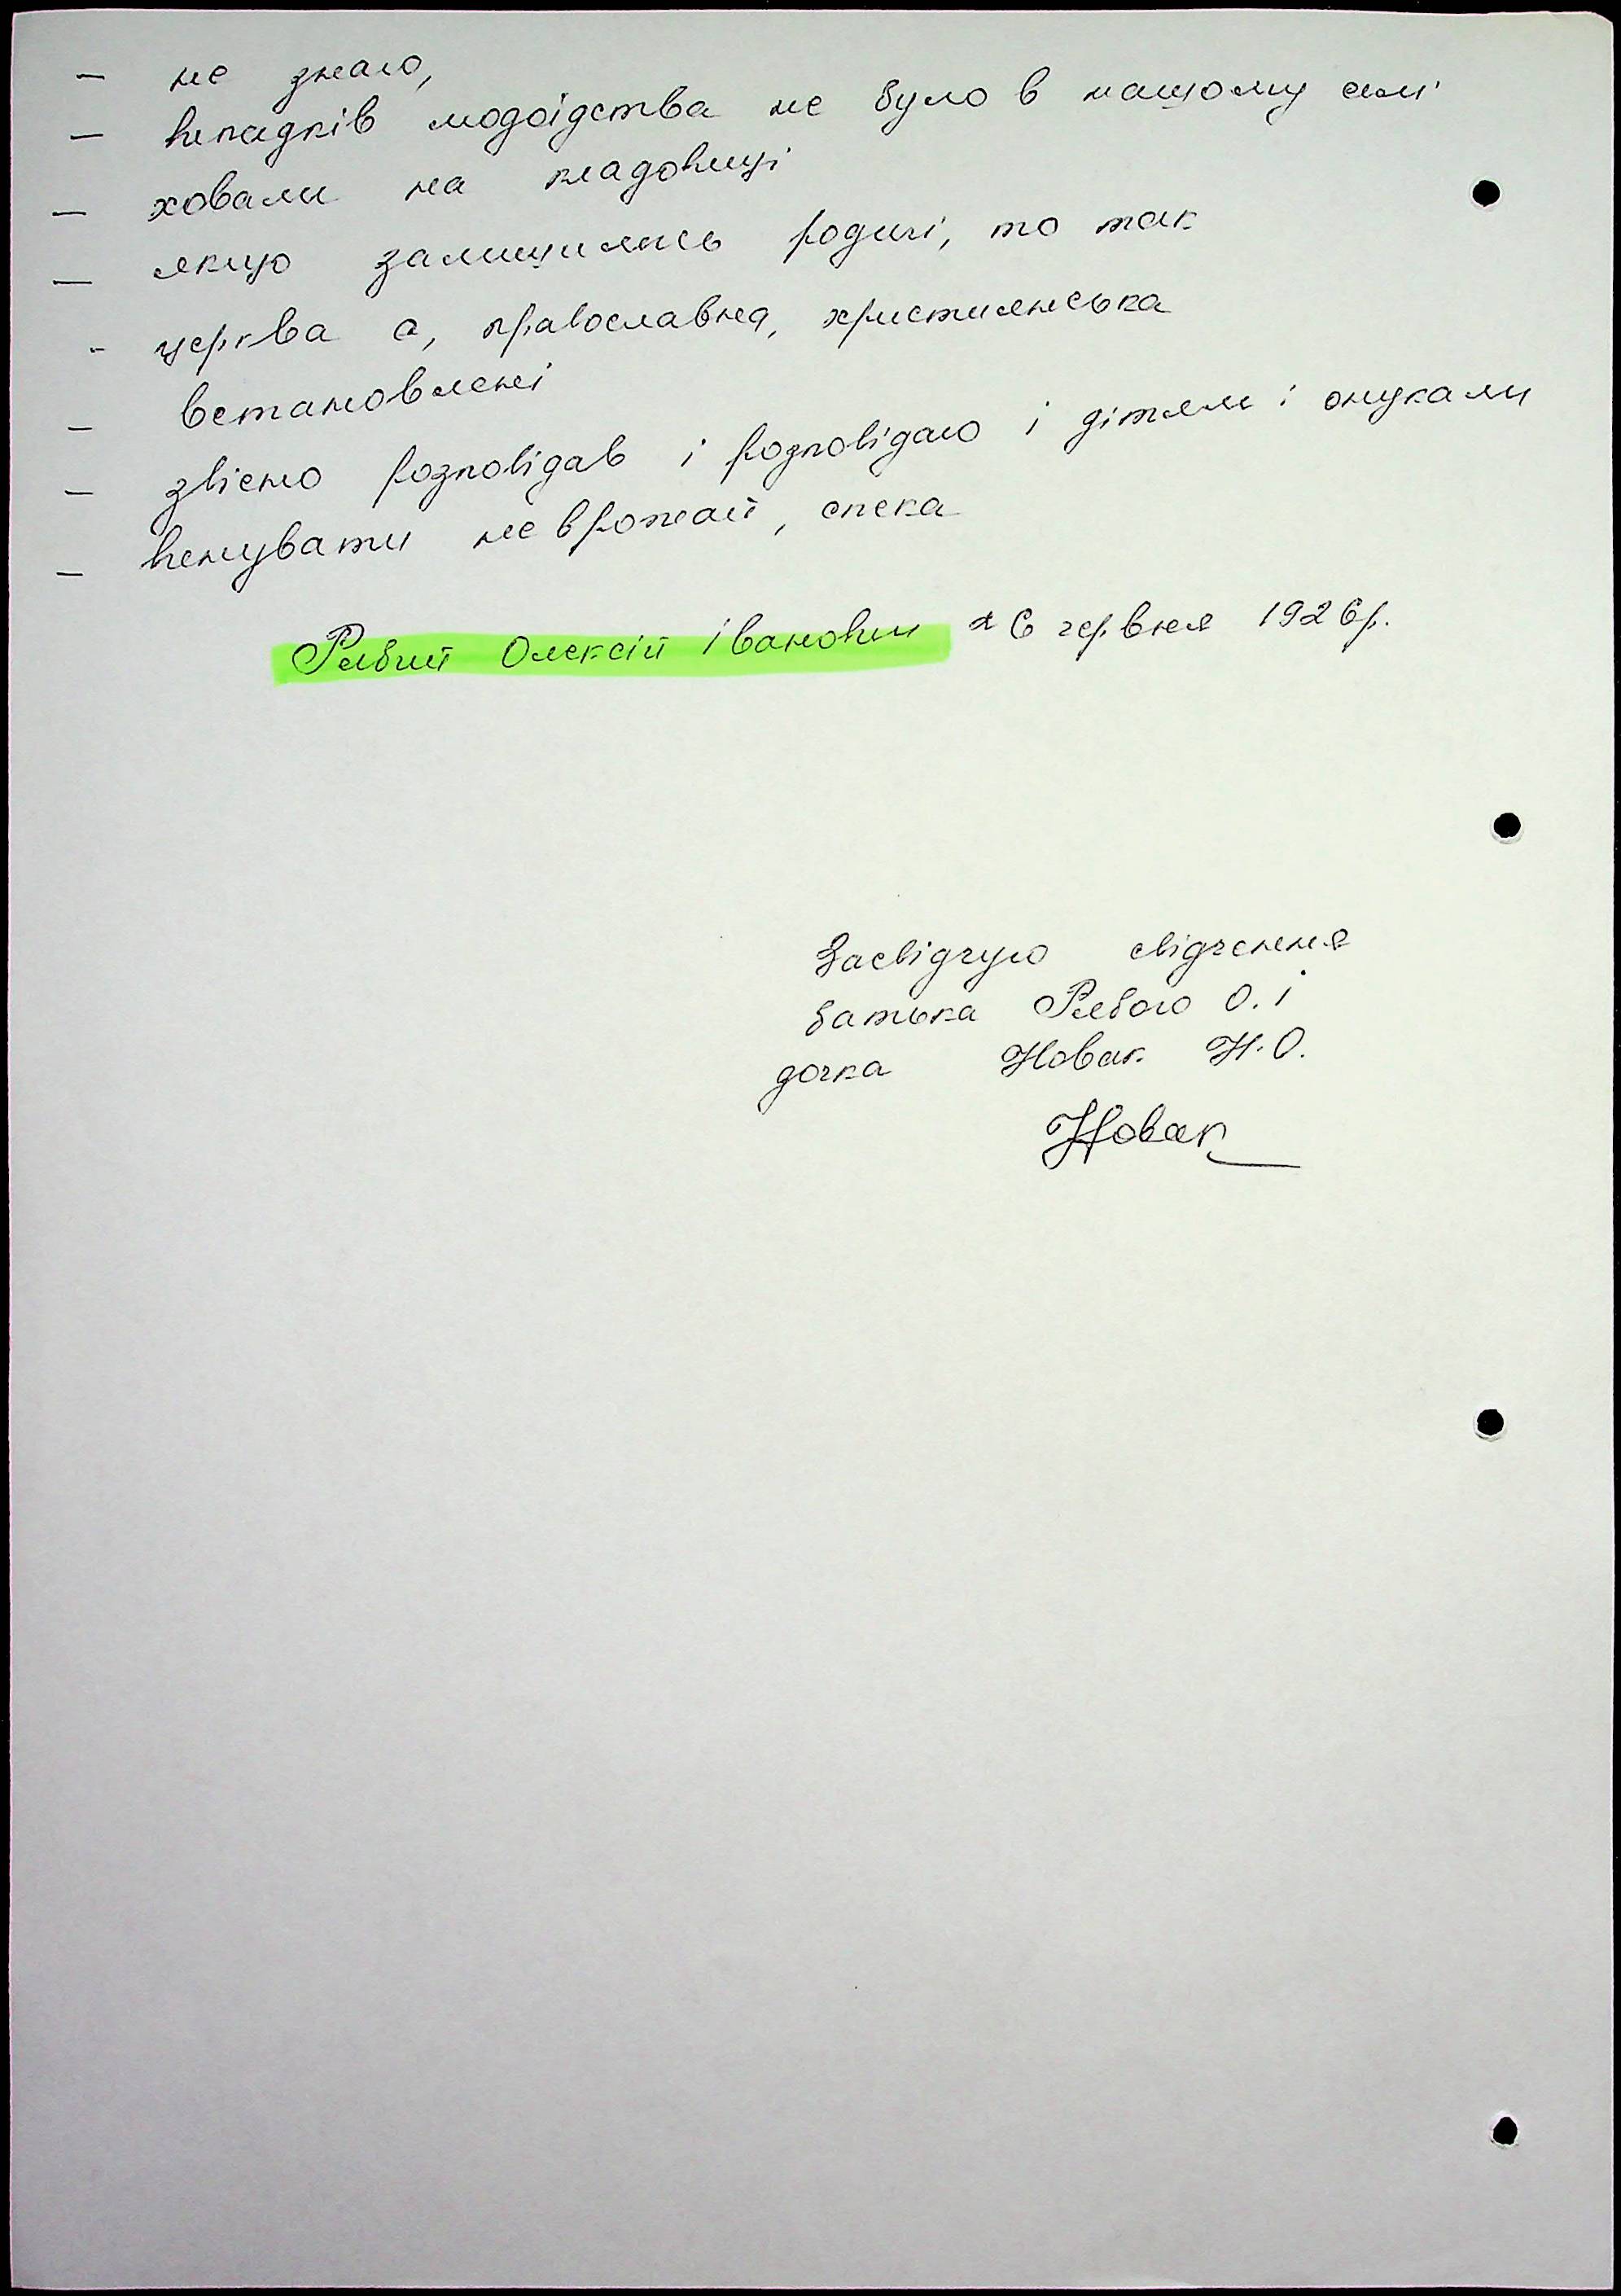 — не знаю,
— випадків людоїдства не було в нашому селі
— ховали на кладовищі
— якщо залишились родичі, то так
- церква є, православна, християнська
— встановлені
— звісно розповідав і розповідаю і дітям і онукам
— винувати неврожай, спека
Рябий Олексій Іванович * 6 червня 1926р.
Засвідчую свідчення
батька Рябого О.І
дочка Новак Н.О.
Новак